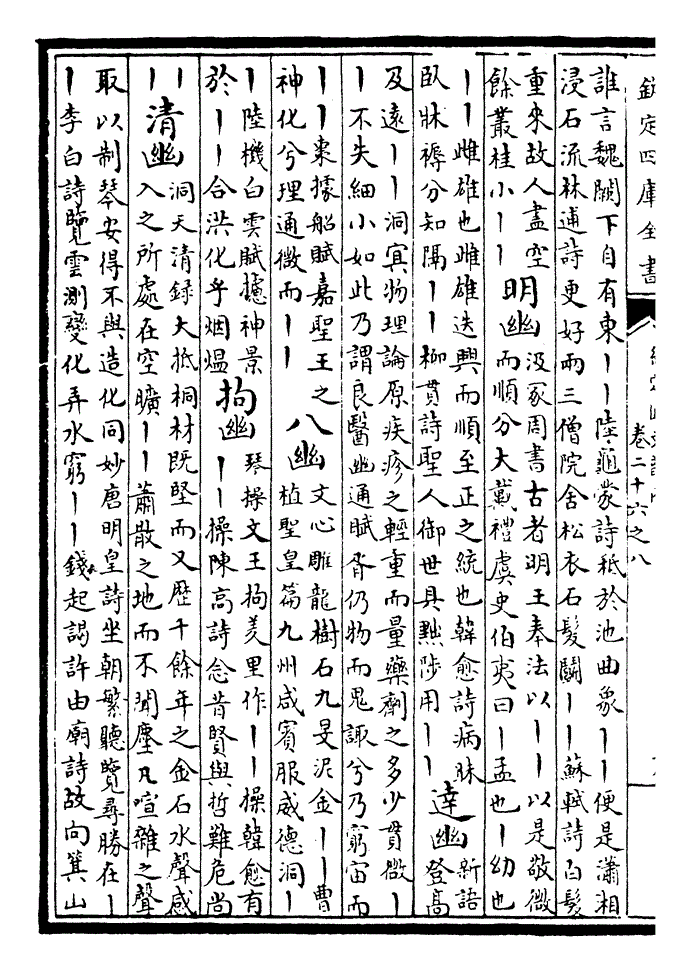 欽定四庫全書
卷二十六之八
誰言魏闕下自有東丨丨陸龜蒙詩秪於池曲象丨丨便是瀟湘
浸石流林逋詩更好兩三僧院舍松衣石髮鬭丨丨蘇軾詩白髮
重來故人盡空
餘叢桂小丨丨
明幽
汲冢周書古者明王奉法以丨丨以是敬微
而順分大戴禮虞史伯夷曰丨孟也丨幼也
丨丨雌雄也雌雄迭興而順至正之統也韓愈詩病妹
臥牀褥分知隔丨丨柳貫詩聖人御世具黜陟用丨丨
達幽
新語
登高
及遠丨丨洞冥物理論原疾疹之輕重而量藥劑之多少貫微丨
丨不失細小如此乃謂良醫幽通賦胥仍物而鬼諏兮乃窮宙而
丨丨棗據船賦嘉聖王之
神化兮理通微而丨丨
八幽
文心雕龍樹石九旻泥金丨丨曹
植聖皇篇九州咸賓服威德洞丨
丨陸機白雲賦攄神景
於丨丨合洪化乎烟熅
拘幽
琴操文王拘羑里作丨丨操韓愈有
丨丨操陳高詩念昔賢與哲難危尚
丨
丨
清幽
洞天清録大抵桐材既堅而又歷千餘年之金石水聲感
入之所處在空曠丨丨蕭散之地而不聞塵凡喧雜之聲
取以制琴安得不與造化同妙唐明皇詩坐朝繁聽覽尋勝在丨
丨李白詩覽雲測變化弄水窮丨丨錢起謁許由廟詩故向箕山